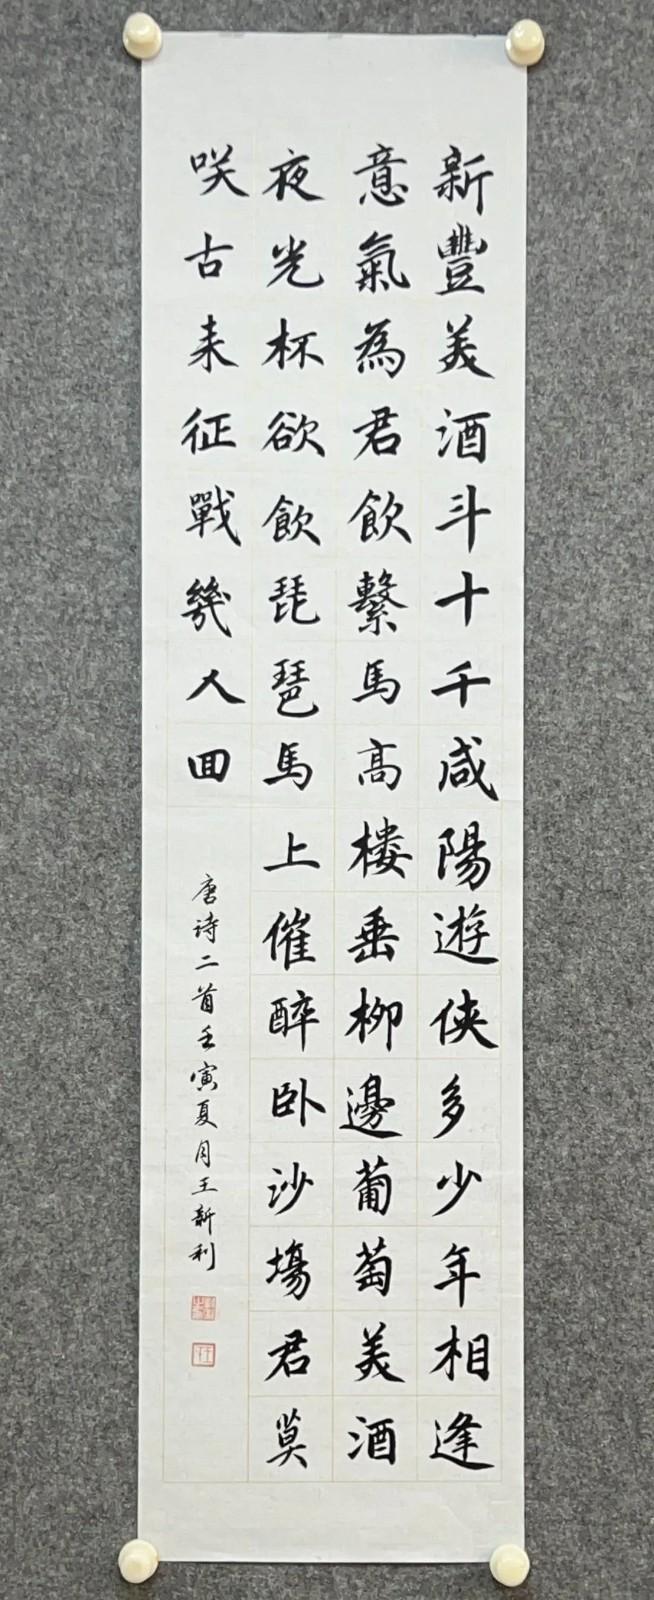 新豐美酒斗十千咸陽遊侠多少年相逢
意氣為君飲繫馬高楼垂柳邊葡萄美酒
夜光杯欲飲琵琶馬上催醉卧沙場君莫
咲古来征戰幾人回
唐诗二首壬寅夏月王新利